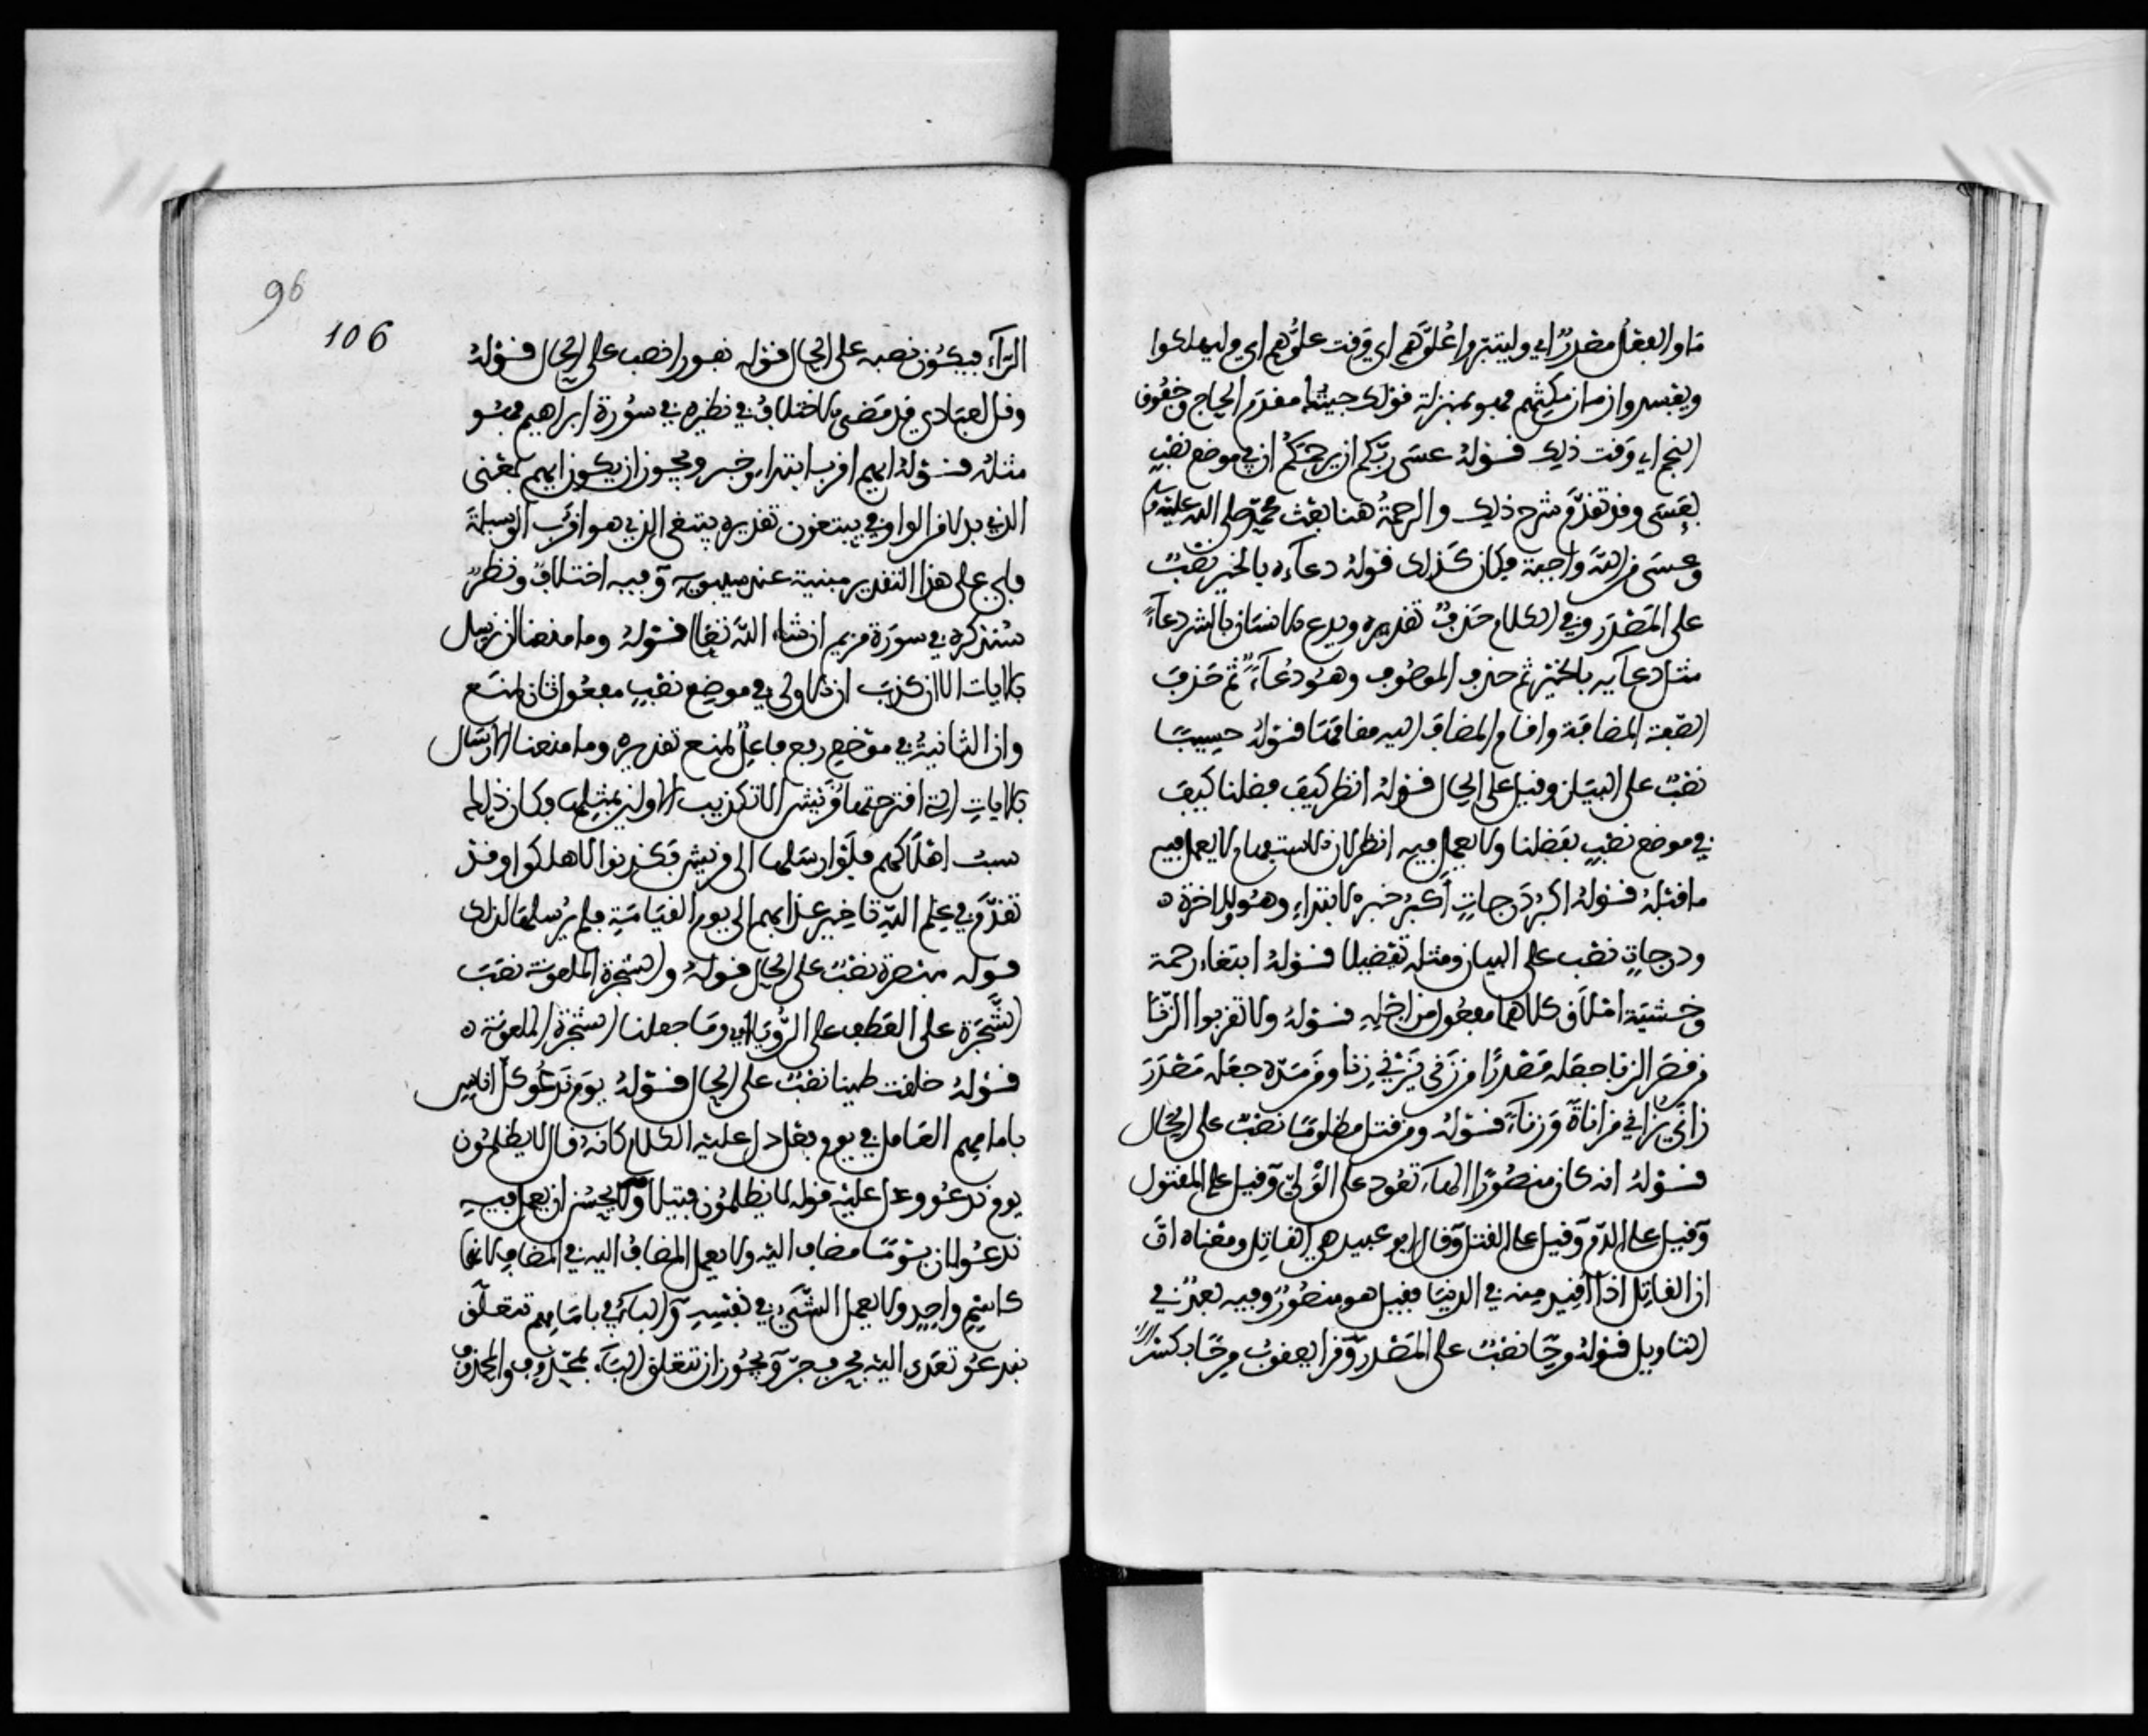 ما والفعل مصدر اي وليتبروا علوهم اي وقت علوهم اي وليهلكوا
ويفسدوا زمان تمكينهم فهو بمنزلة قولك جيتك مقدم الحاج وخفوق
النجم اي وقت ذلك قوله عسى ربكم ان يرحمكم ان في موضع نصب
بعسى وقد تقدم شرح ذلك والرحمة هنا بعث محمد صلى الله عليه
وعسى من الله واجبة فكان كذلك قوله دعاءه بالخير نصب
على المصدر وفي الكلام حذف تقديره ويدع الانسان بالشر دعاء
مثل دعايه بالخير ثم حذف الموصوف وهو دعاء ثم حذف
الصفة المضافة واقام المضاف اليه مقامها قوله حسيبا
نصب على البيان وقيل على الحال قوله انظر كيف فضلنا كيف
في موضع نصب بفضلنا ولا يعمل فيه انظر لان الاستفهام لا يعمل فيه
ما قبله قوله اكبر درجات أكبر خبر الابتداء وهو وللاخرة ه
ودرجات نصب على البيان ومثله تفضيلا قوله ابتغاء رحمة
وخشية املاق كلاهما مفعول من اجله قوله ولا تقربوا الزنا
من قصر الزنا جعله مصدرا من زنى يزني زنا ومن مده جعله مصدر
زانى يزاني مزاناة وزناء قوله ومن قتل مظلوما نصب على الحال
قوله انه كان منصورا الهاء تعود على الولي وقيل على المقتول
وقيل على الدم وقيل على القتل وقال ابو عبيد هي للقاتل ومعناه ان
ان القاتل اذا اقيد منه في الدنيا فقيل هو منصور وفيه بعد في
التاويل قوله مرحا نصب على المصدر وقرا يعقوب مرحا بكسر
96
106
الراء فيكون نصبه على الحال قوله نفورا نصب على الحال قوله
وقل لعبادي قد مضى الاختلاف في نظيره في سورة ابراهيم فهو
مثله قوله ايهم اقرب ابتداء وخبر ويجوز ان يكون ايهم بمعنى
الذي بدلا من الواو في يبتغون تقديره يبتغي الذي هو اقرب الوسيلة
فاي على هذا التقدير مبنية عند سيبويه وفيه اختلاف ونظر
سنذكره في سورة مريم ان شاء الله تعالى قوله وما منعنا ان نرسل
بالايات الا ان كذب ان الاولى في موضع نصب مفعول ثان لمنع
وان الثانية في موضع رفع فاعل لمنع تقديره وما منعنا الارسال
بالايات التي اقترحتها قريش الا تكذيب الاولين بمثلها فكان ذلك
سبب اهلاكهم فلو ارسلها الى قريش فكذبوا لاهلكوا وقد
تقدم في علم الله تاخير عذابهم الى يوم القيامة فلم يرسلها لذلك
قوله مبصرة نصب على الحال قوله والشجرة الملعونة نصب
الشجرة على العطف على الرؤيا اي وما جعلنا الشجرة الملعونة ه
قوله خلقت طينا نصب على الحال قوله يوم ندعو كل اناس
بامامهم العامل في يوم فعل دل عليه الكلام كانه قال لا يظلمون
يوم ندعو ودل عليه قوله لا يظلمون فتيلا ولا يحسن ان يعمل فيه
ندعو لان يوما مضاف اليه ولا يعمل المضاف اليه في المضاف لانهما
كاسم واحد ولا يعمل الشيء في نفسه والباء في بامامهم تتعلق
بندعو تعدى اليه بحرف جر ويجوز ان تتعلق الباء بمحذوف والمحذوف